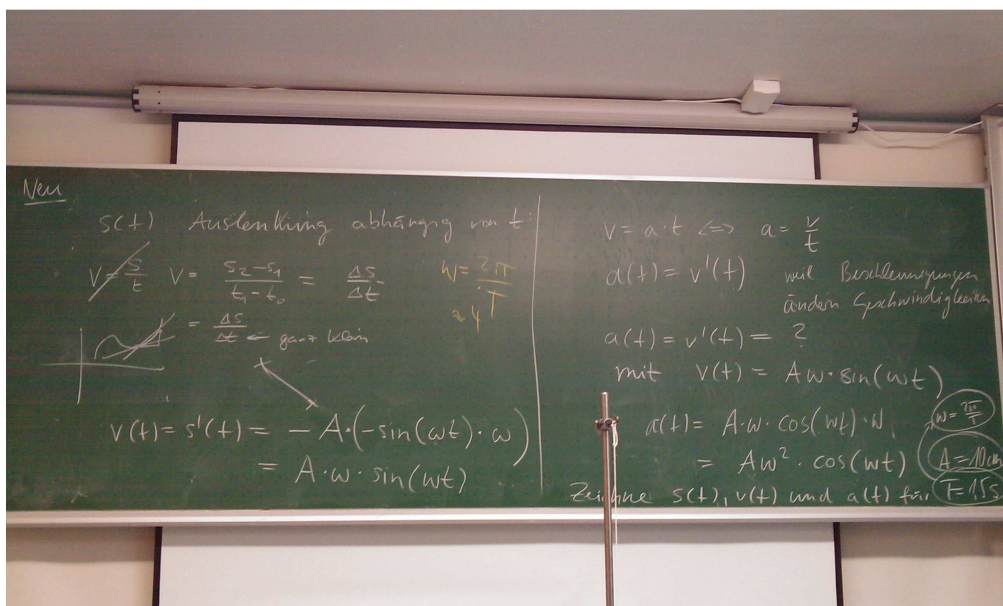 Neu
s(t) Auslenkung abhängig von t
V = s/t V = (s₂-s₁)/(t₁-t₀) = Δs/Δt
= Δs/Δt ← ganz klein
W = 2π/T
≈ 4
v(t) = s'(t) = -A·(-sin(ωt)·ω)
= A·ω·sin(ωt)
v = a·t <=> a = v/t
a(t) = v'(t) weil Beschleunigungen
ändern Geschwindigkeiten
a(t) = v'(t) = ?
mit v(t) = Aω·sin(ωt)
a(t) = A·ω·cos(ωt)·ω
= Aω²·cos(ωt)
ω = 2π/T
A = 10cm
T = 1,5s
Zeichne s(t), v(t) und a(t) für